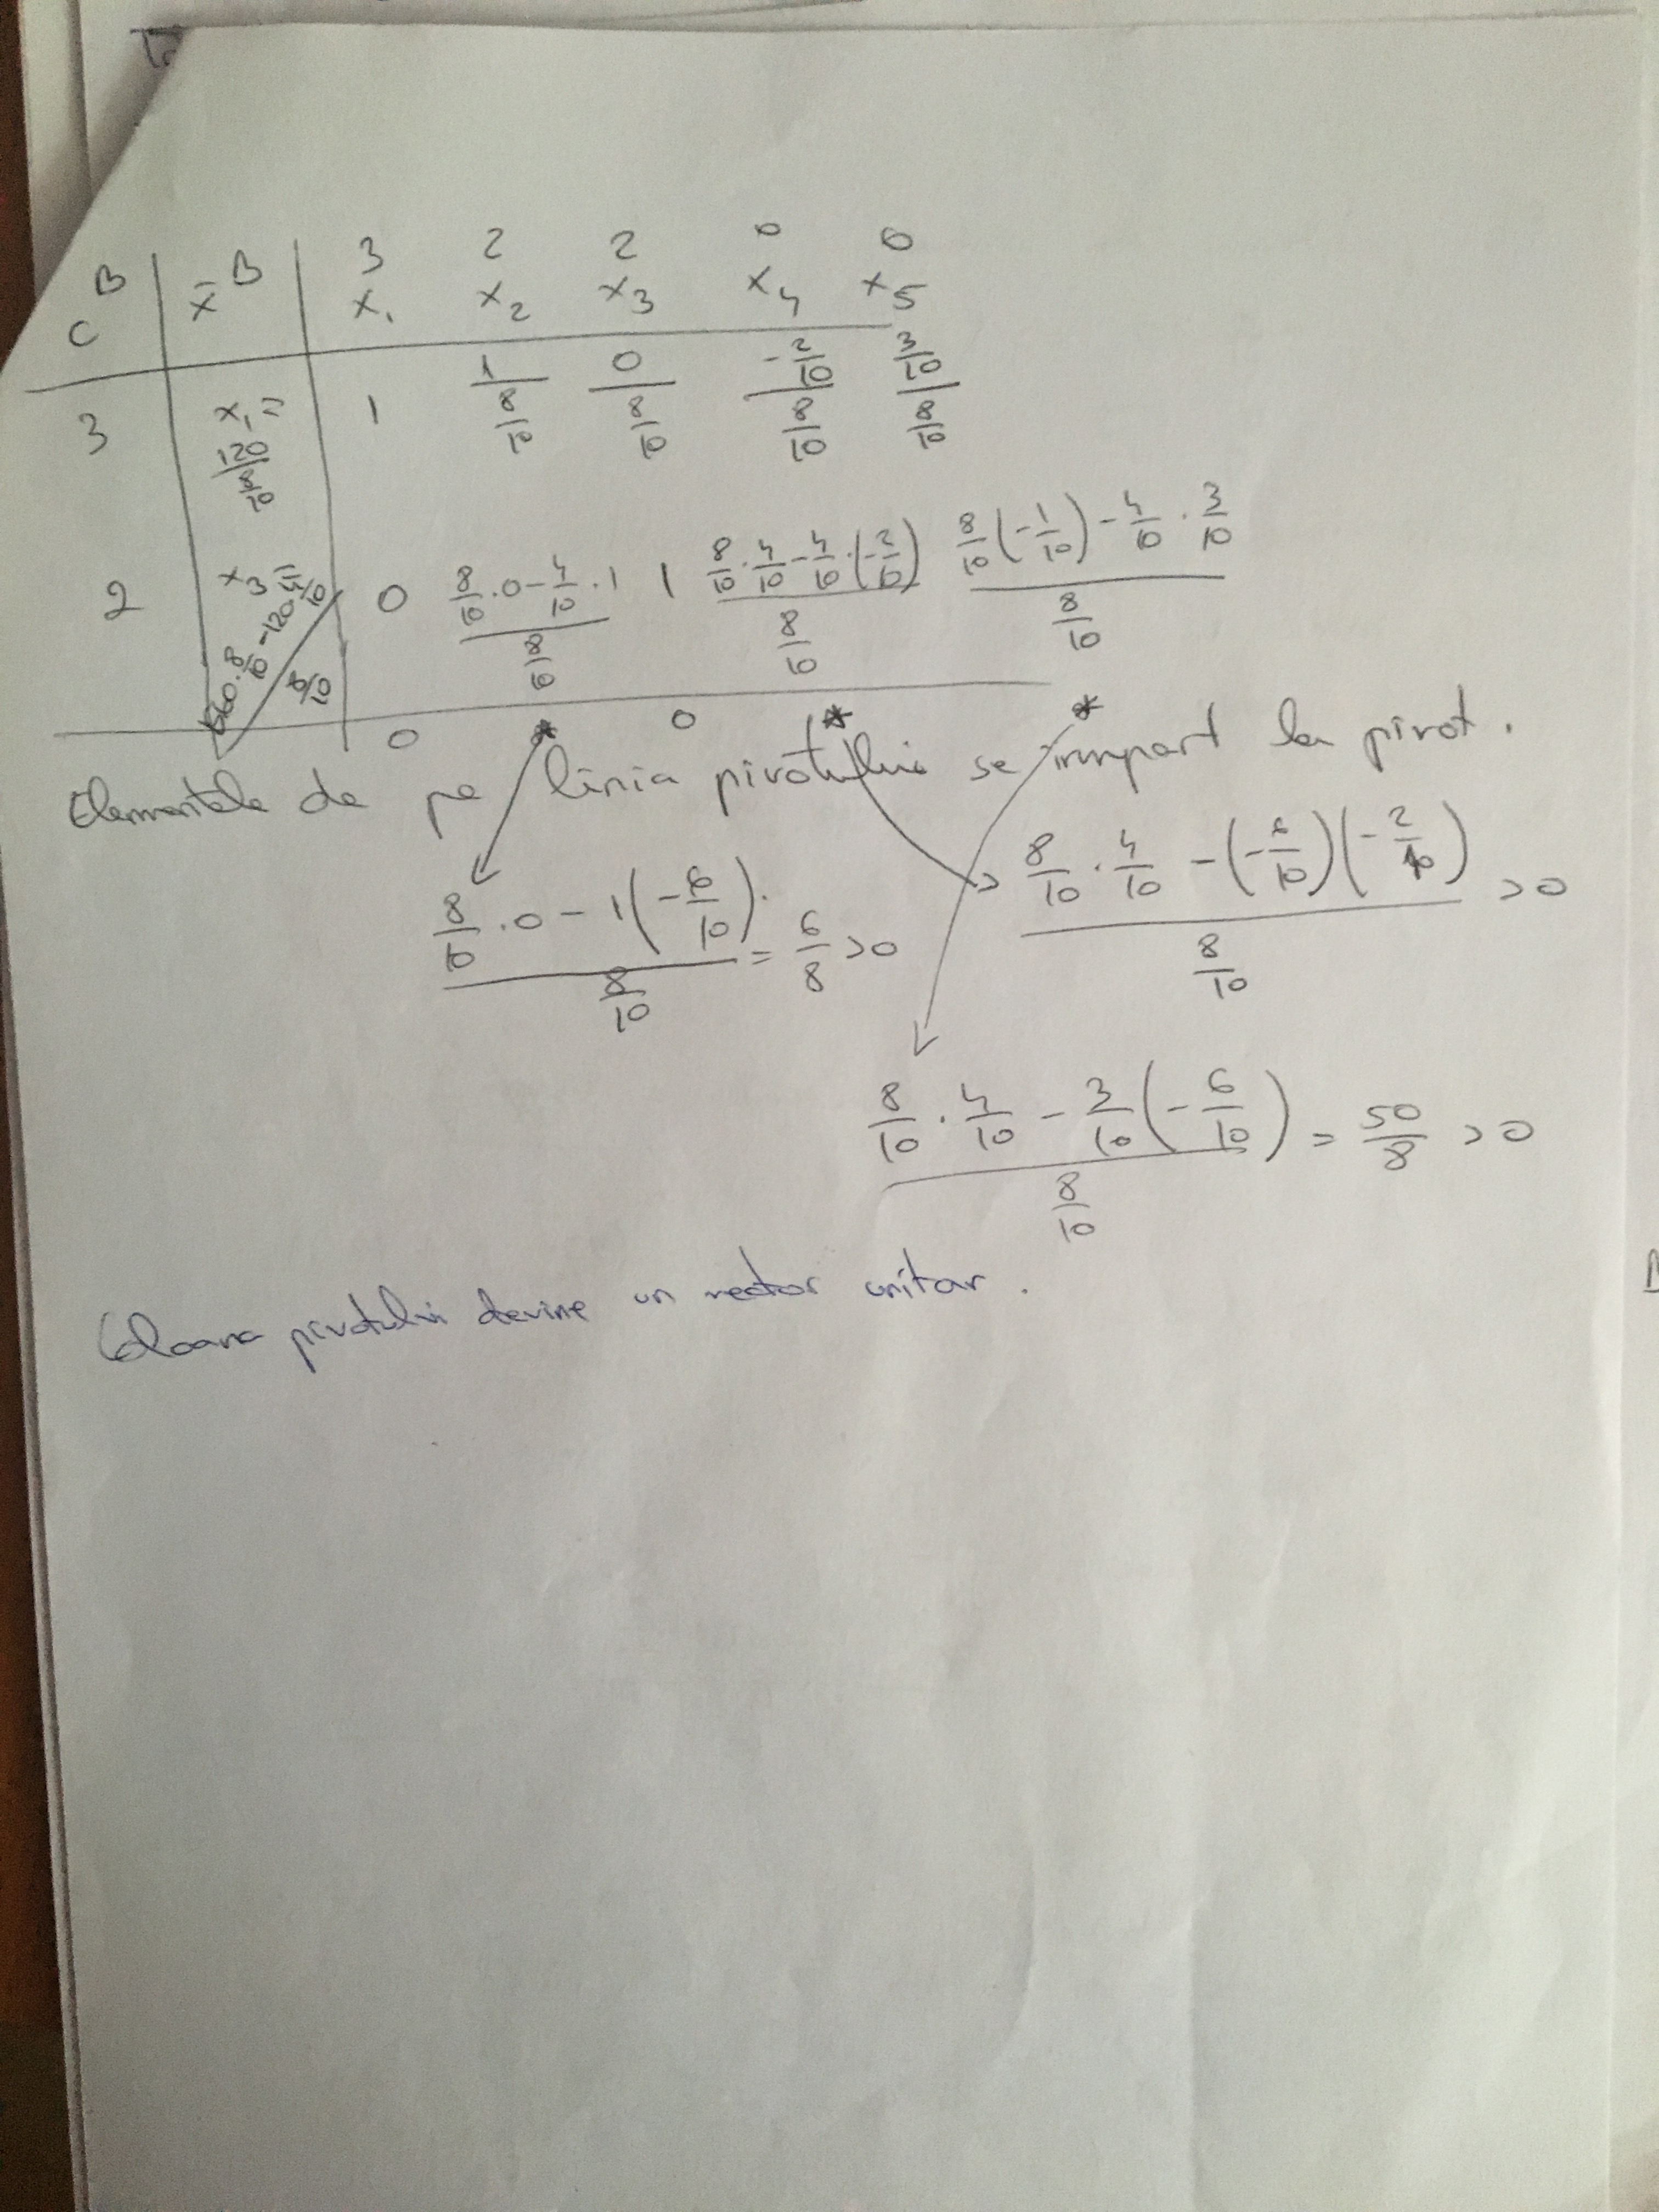 3 2 2 0 0
C^B x̄^B x₁ x₂ x₃ x₄ x₅
3 x₁ = 120/(8/10) 1 1/(8/10) 0/(8/10) (-2/10)/(8/10) (3/10)/(8/10)
2 x₃ = 0 (8/10 · 0 - 4/10 · 1)/(8/10) 1 (8/10 · 4/10 - 4/10 · (-2/10))/(8/10) (8/10 (-1/10) - 4/10 · 3/10)/(8/10)
0 * 0 * *
Elementele de pe linia pivotului se impart la pivot.
(8/10 · 0 - 1(-6/10))/(8/10) = 6/8 > 0
(8/10 · 4/10 - (-6/10)(-2/10))/(8/10) > 0
(8/10 · 4/10 - 3/10 (-6/10))/(8/10) = 50/8 > 0
Coloana pivotului devine un vector unitar.